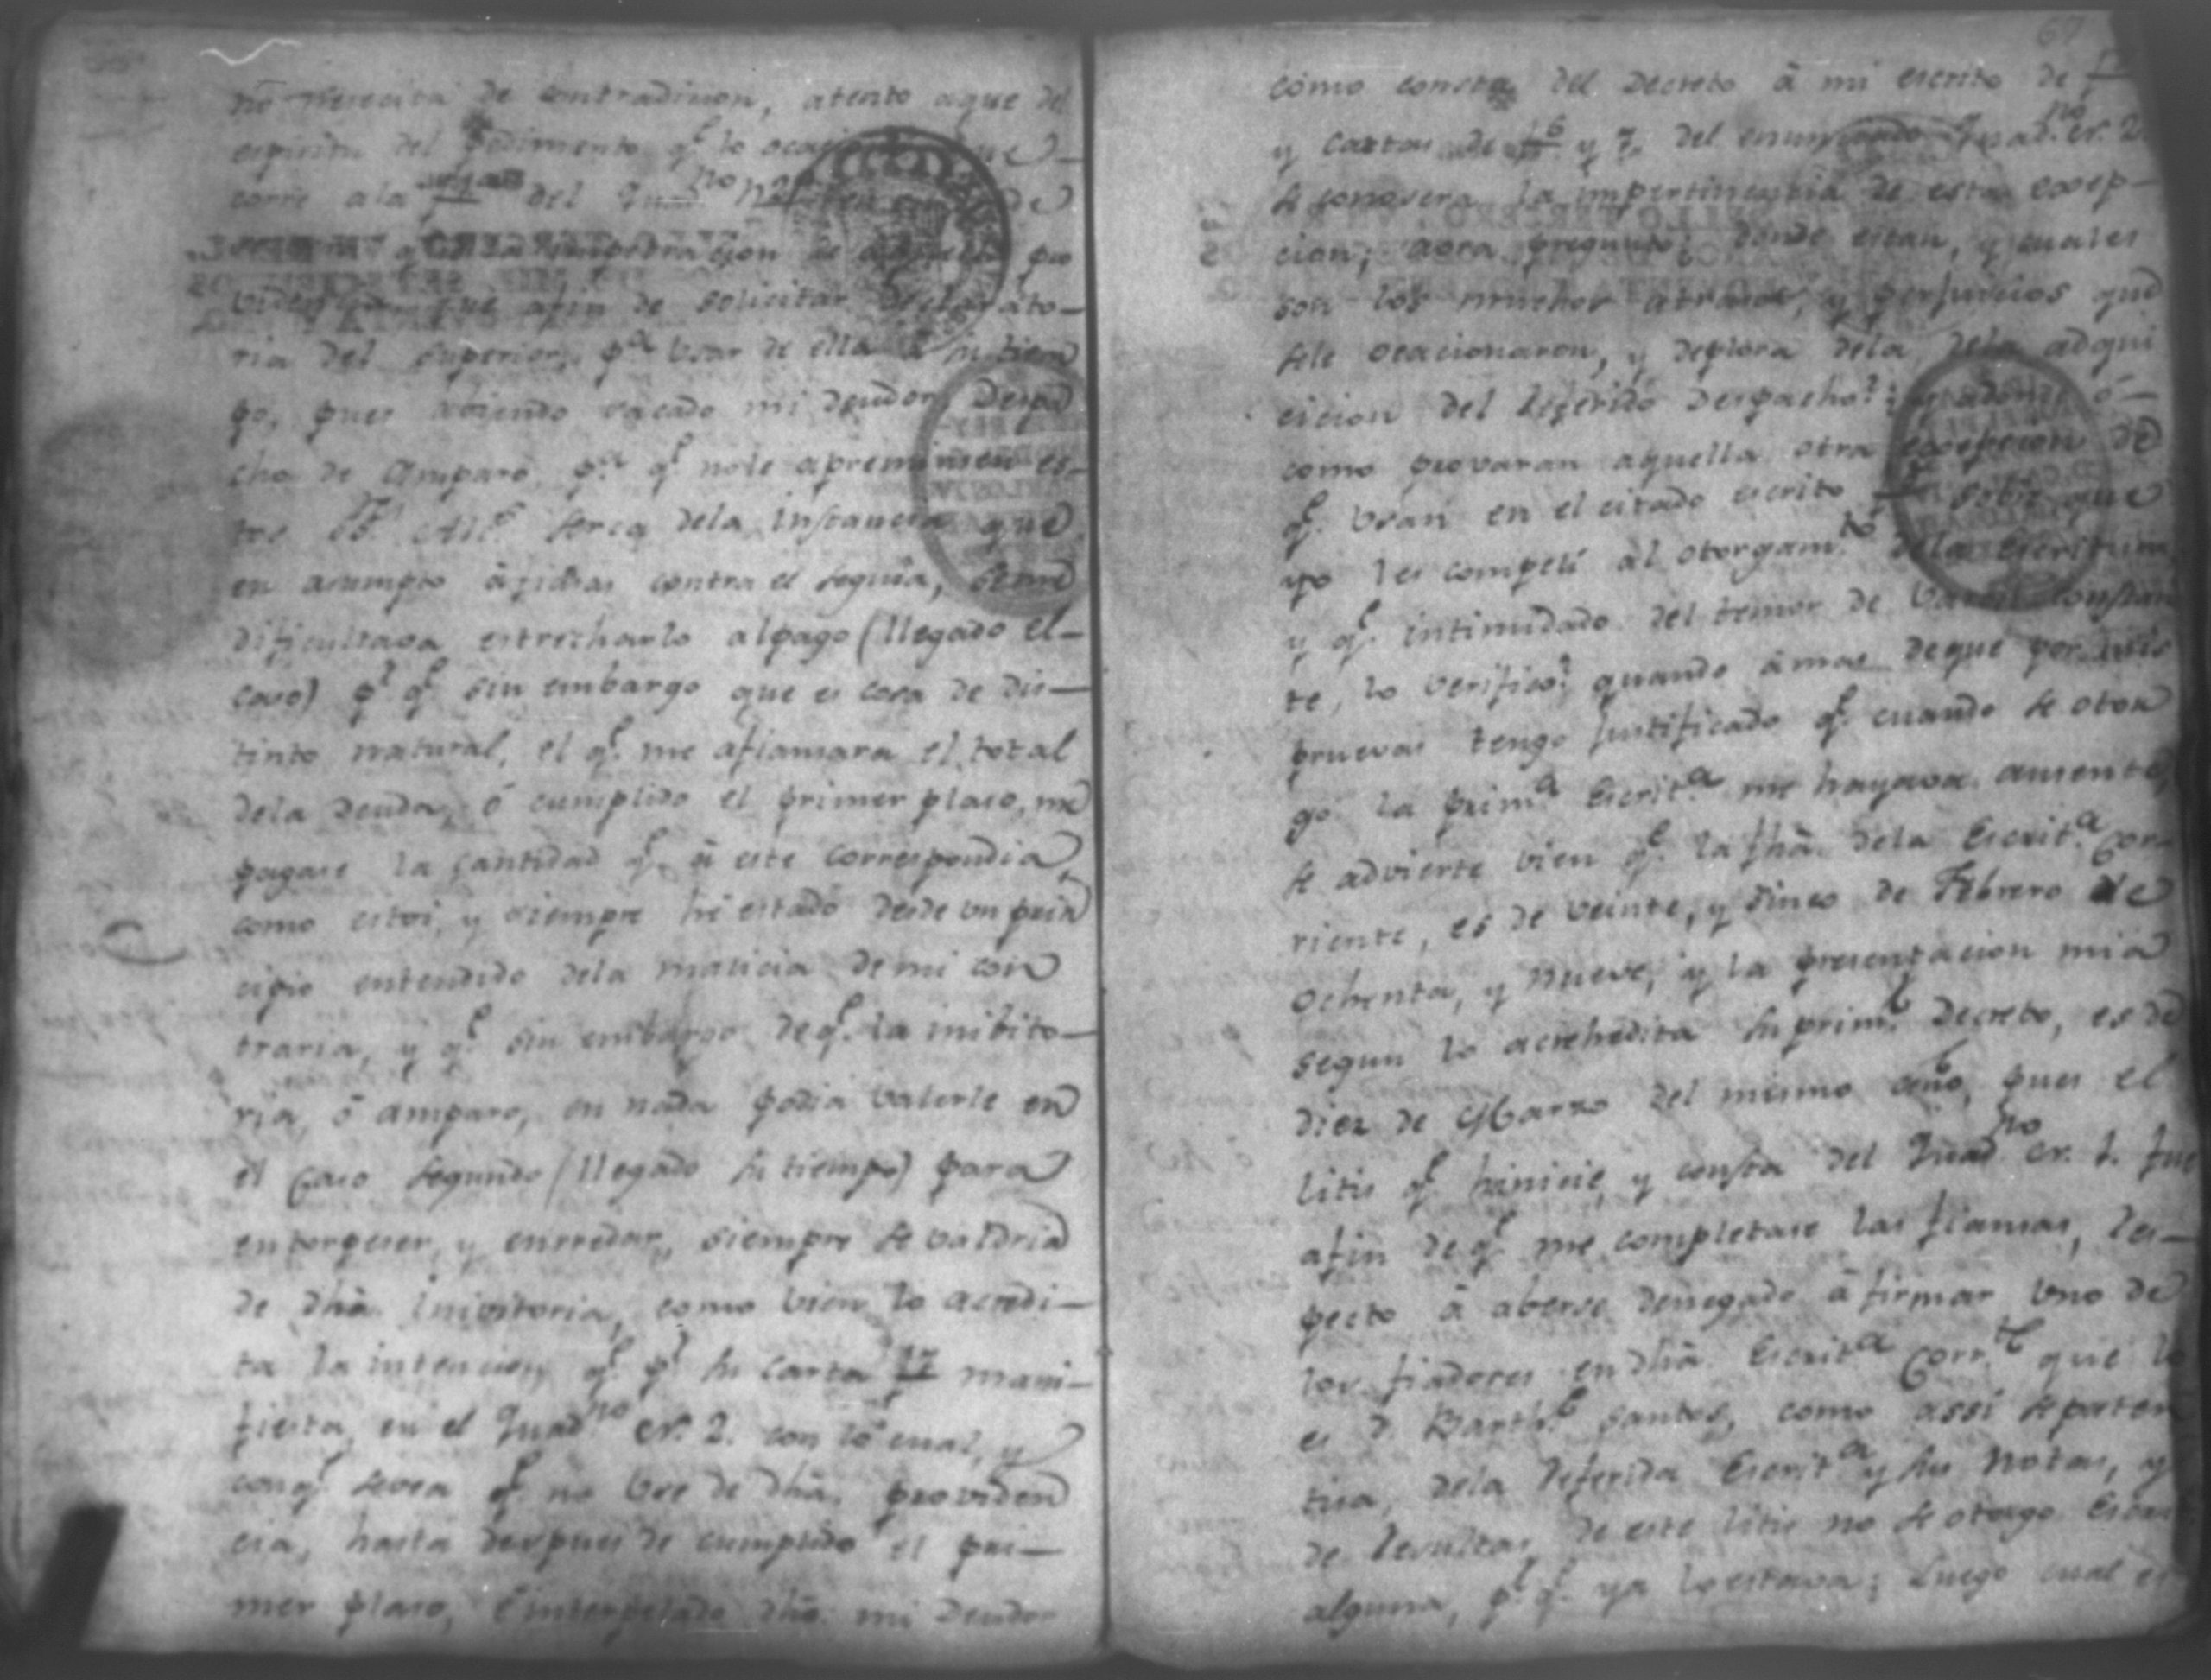 no necesita de contradicion, atento aque del
espiritu del pedimento qe lo
corre ala del Quadno
de pro
fue afin de solicitar declarato-
ria del superior, pa Usar de ella a su tiem
po, pues aviendo sacado mi deudor Despa
cho de Amparo pa qe nole apremiasen es-
tos Alcs serca dela Instancia que
en asumpto àfianzas contra el seguia, seme
dificultava estrecharlo alpago (llegado el-
caso) pr qe sin embargo que es cosa de dis-
tinto natural, el qe me afiansara el total
dela deuda, ó cumplido el primer plaso, me
pagase la cantidad qe á este correspondia,
como estoi, y siempre hé estado desde un prin
cipio entendido dela malicia demi con
traria, y qe sin embargo deqe la inibito-
ria, ó amparo, en nada podia valerle en
el caso segundo (llegado su tiempo) para
entorpeser, y enrredar, siempre se valdria
de dha Inivitoria, como bien lo acredi-
ta la intencion qe pr su carta f 17 mani-
fiesta, en el Quadno cr. 2. con lo cual, y
conqe sevea qe no Use de dha. providen
cia, hasta despues de cumplido el pri-
mer plaso, é interpelado dho. mi Deudor
67
cómo consta del Decreto â mi escrito de f
y cartas de f 6 y 7. del enunciado Quadno cr. 2
se conosera la impertinencia de esta exsep-
cion; aora pregunto; donde estan, y cuales
son los muchos atrasos, y perjuicios que
sele ocacionaron, y deplora dela dela adqui
cicion del referido Despacho?: ó-
como provaran aquella otra exsepcion de
qe Usan en el citado escrito f sobre que
yo les competí al otorgamto dela Escritura
y qe intimidado del temor de Varon constan
te, lo verificó? quando àmas deque por mis
pruevas tengo justificado qe cuando se otor
gó la prima Escrita me hayava ausente,
se advierte bien qe la fha. dela Escrita Cor-
riente, es de veinte, y sinco de Febrero de
ochenta, y nueve, y la presentacion mia
segun lo acrehedita su primr Decreto, es de
diez de Marzo del mismo año, pues el
litis qe hinicie, y consta del Quadno cr. 1. fue
afin de qe me completase las fiansas, res-
pecto â aberse denegado â firmar Uno de
los fiadores en dha. Escrita Corrte que lo
es D. Barthe Santos, como assí separten
tisa, dela referida Escrita y sus Notas, y
de resultas de este litis no se otorgo Escra
alguna, pr qe ya loestava; Luego cual es